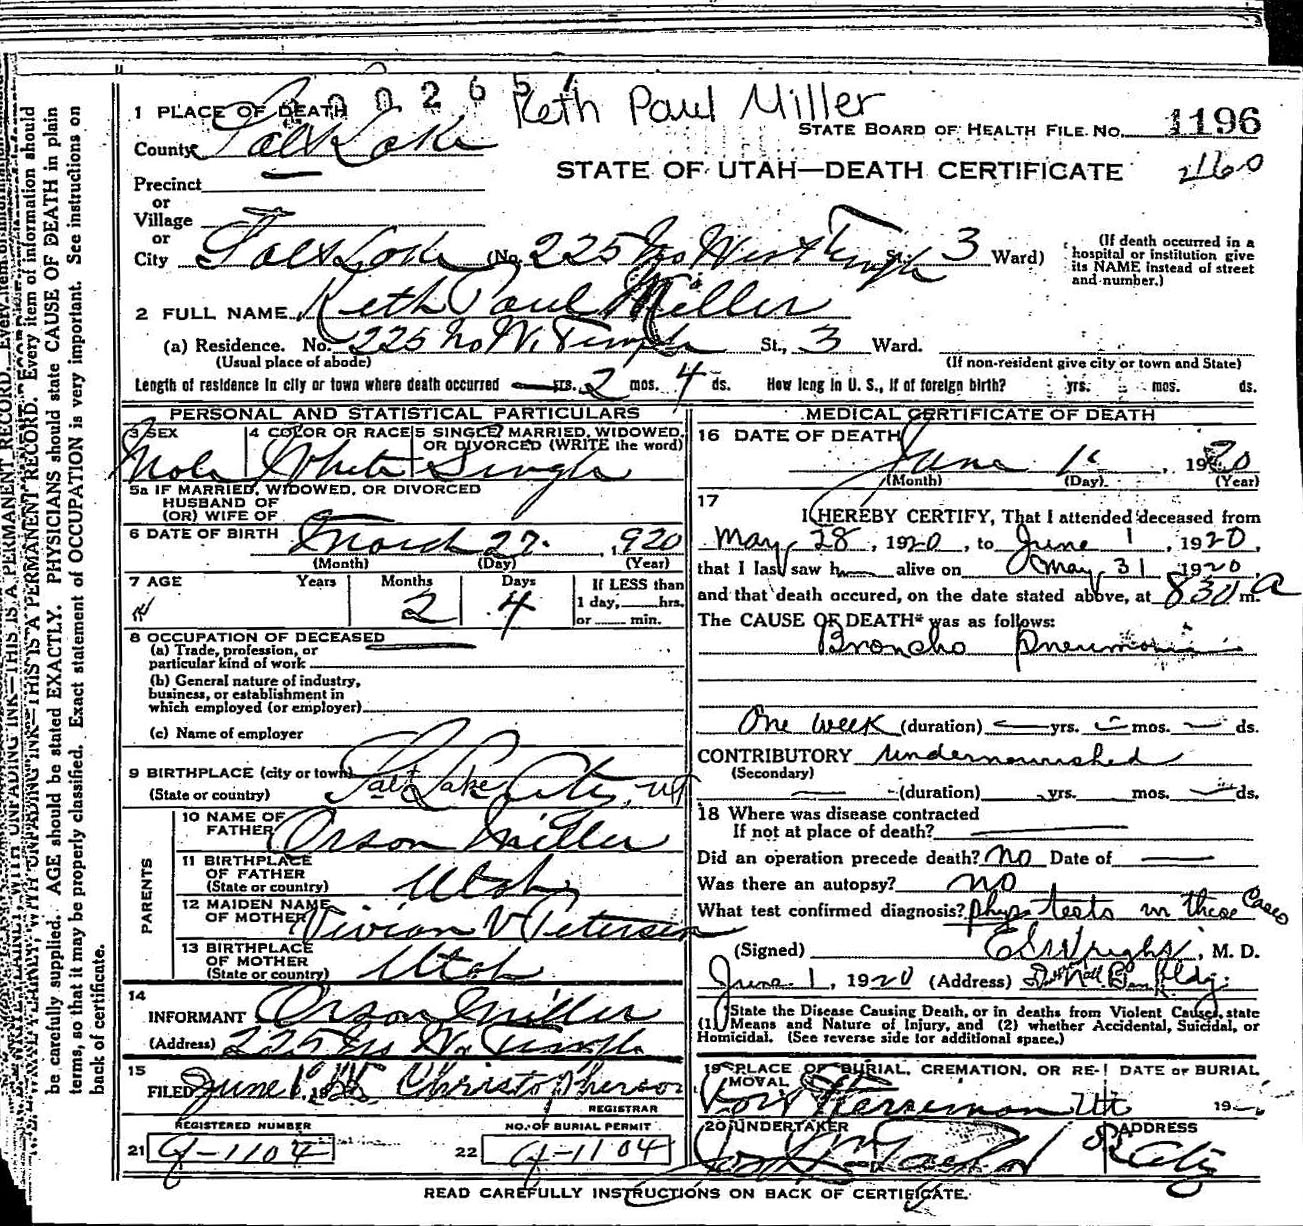 Keth Paul Miller
1 PLACE OF DEATH
STATE BOARD OF HEALTH FILE NO. 1196
County Salt Lake
STATE OF UTAH—DEATH CERTIFICATE
260
Precinct
or
Village
or
City Salt Lake (No. 225 No West Temple St. 3 Ward)
(If death occurred in a
hospital or institution give
its NAME instead of street
and number.)
2 FULL NAME Keth Paul Miller
(a) Residence. No. 225 No W. Temple St., 3 Ward.
(Usual place of abode) (If non-resident give city or town and State)
Length of residence in city or town where death occurred yrs. 2 mos. 4 ds. How long in U. S., if of foreign birth? yrs. mos. ds.
PERSONAL AND STATISTICAL PARTICULARS
3 SEX 4 COLOR OR RACE 5 SINGLE, MARRIED, WIDOWED,
OR DIVORCED (WRITE the word)
Male White Single
5a IF MARRIED, WIDOWED, OR DIVORCED
HUSBAND OF
(OR) WIFE OF
6 DATE OF BIRTH March 27. 1920
(Month) (Day) (Year)
7 AGE Years Months Days If LESS than
2 4 1 day, hrs.
or min.
8 OCCUPATION OF DECEASED
(a) Trade, profession, or
particular kind of work
(b) General nature of industry,
business, or establishment in
which employed (or employer)
(c) Name of employer
9 BIRTHPLACE (city or town) Salt Lake City, Ut
(State or country)
PARENTS
10 NAME OF
FATHER Orson Miller
11 BIRTHPLACE
OF FATHER Utah
(State or country)
12 MAIDEN NAME
OF MOTHER Vivian V Petersen
13 BIRTHPLACE
OF MOTHER Utah
(State or country)
14
INFORMANT Orson Miller
(Address) 225 No W. Temple
15
FILED June 1, Christopherson
REGISTRAR
REGISTERED NUMBER NO. OF BURIAL PERMIT
21 G-1104 22 G-1104
MEDICAL CERTIFICATE OF DEATH
16 DATE OF DEATH
June 1, 1920
(Month) (Day) (Year)
17
I HEREBY CERTIFY, That I attended deceased from
May 28, 1920, to June 1, 1920,
that I last saw h alive on May 31 1920
and that death occured, on the date stated above, at 830 m. a
The CAUSE OF DEATH* was as follows:
Broncho Pneumonia
One week (duration) yrs. mos. ds.
CONTRIBUTORY undernourished
(Secondary)
(duration) yrs. mos. ds.
18 Where was disease contracted
If not at place of death?
Did an operation precede death? no Date of
Was there an autopsy? no
What test confirmed diagnosis? phys tests in these Cases
(Signed) E S Wright, M. D.
June 1, 1920 (Address) Nat Bank Bldg.
State the Disease Causing Death, or in deaths from Violent Causes, state
(1) Means and Nature of Injury, and (2) whether Accidental, Suicidal, or
Homicidal. (See reverse side for additional space.)
19 PLACE OF BURIAL, CREMATION, OR RE- DATE OF BURIAL
MOVAL
Fort Herriman Ut 19
20 UNDERTAKER ADDRESS
Taylor City
READ CAREFULLY INSTRUCTIONS ON BACK OF CERTIFICATE.
be carefully supplied. AGE should be stated EXACTLY. PHYSICIANS should state CAUSE OF DEATH in plain
terms, so that it may be properly classified. Exact statement of OCCUPATION is very important. See instructions on
back of certificate.